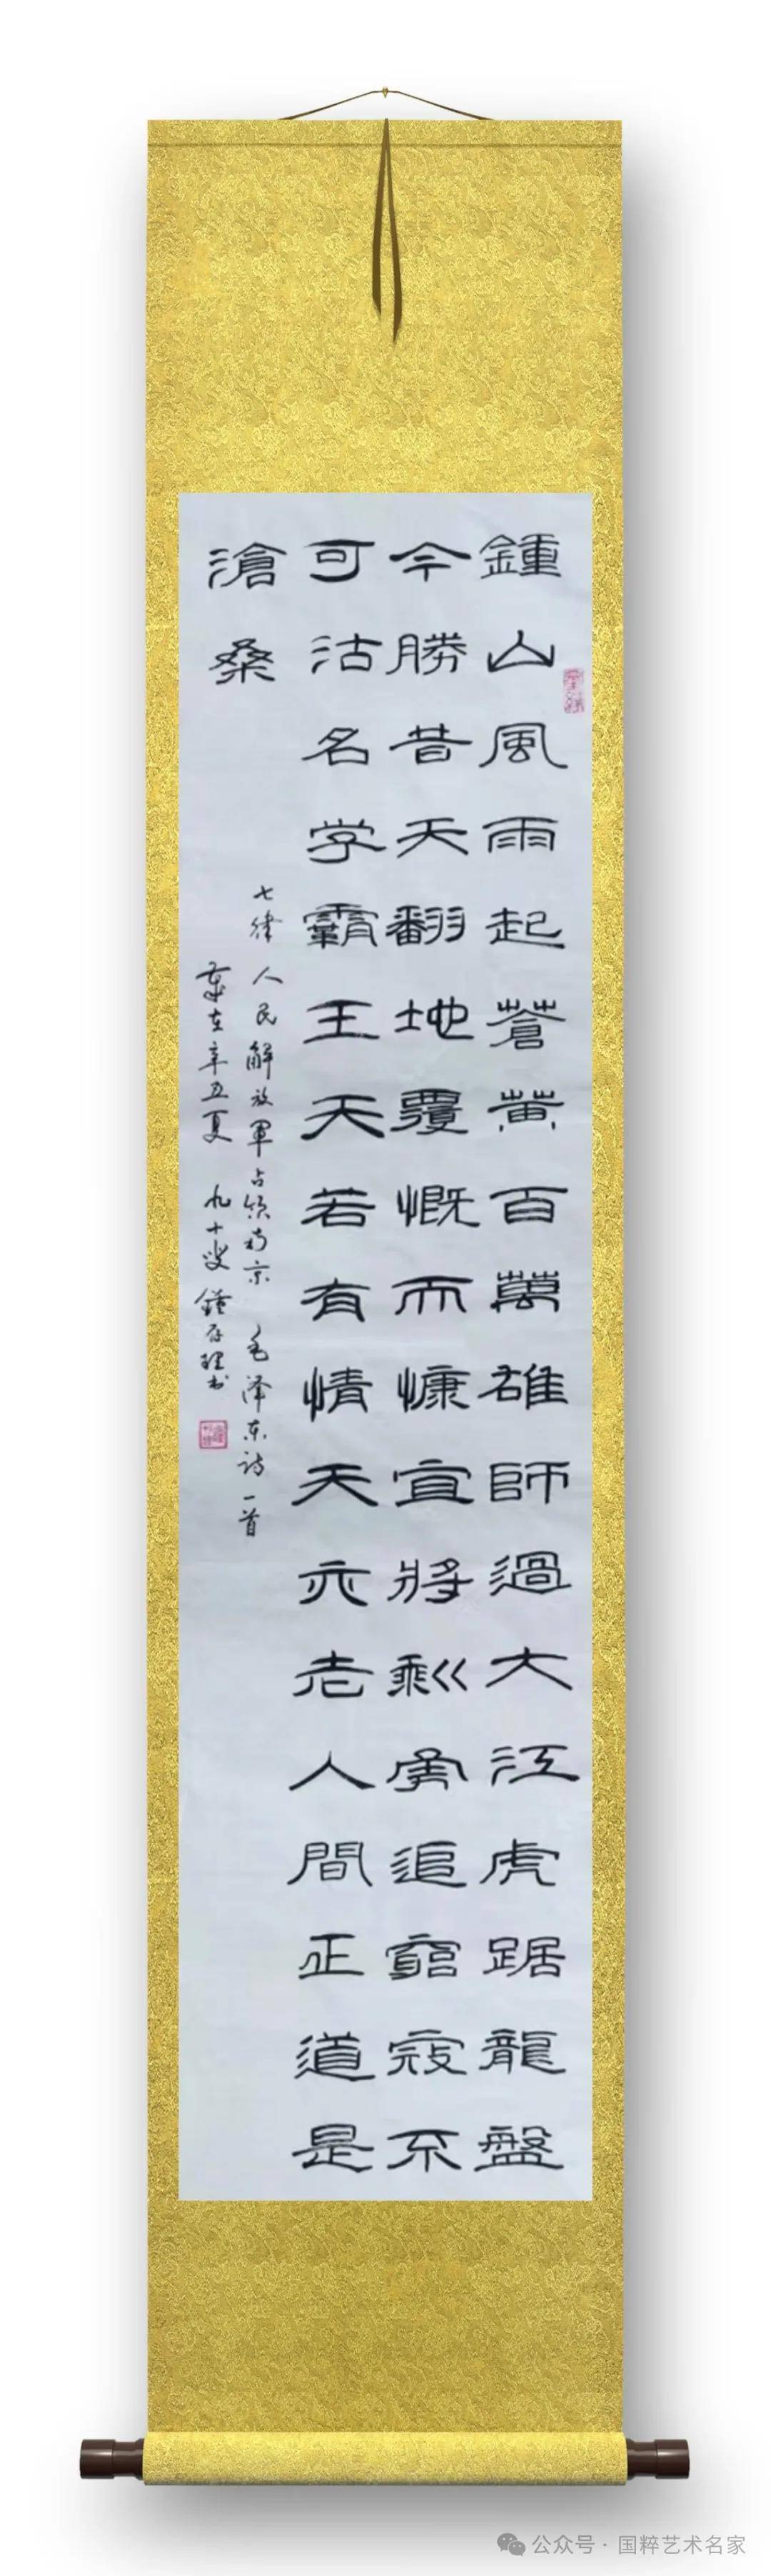 鍾山風雨起蒼黄百萬雄師過大江虎踞龍盤
今勝昔天翻地覆慨而慷宜將剩勇追窮寇不
可沽名学霸王天若有情天亦老人間正道是
滄桑
七律 人民解放軍占领南京 毛泽东诗一首
歲在辛丑夏 九十叟 鍾存理书
公众号 · 国粹艺术名家